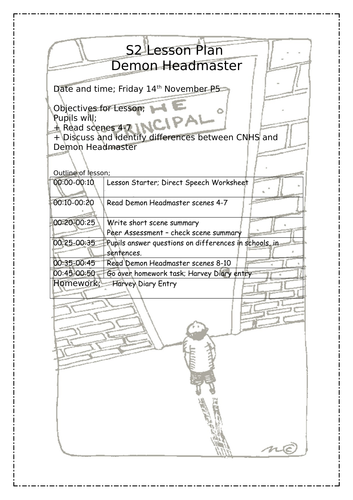 S2 Lesson Plan
Demon Headmaster
Date and time; Friday 14th November P5
Objectives for Lesson;
Pupils will;
+ Read scenes 4-7
+ Discuss and identify differences between CNHS and
Demon Headmaster
THE
PRINCIPAL
Outline of lesson;
00:00-00:10 Lesson Starter; Direct Speech Worksheet
00:10-00:20 Read Demon Headmaster scenes 4-7
00:20-00:25 Write short scene summary
Peer Assessment – check scene summary
00:25-00:35 Pupils answer questions on differences in schools, in
sentences.
00:35-00:45 Read Demon Headmaster scenes 8-10
00:45-00:50 Go over homework task; Harvey Diary entry
Homework; Harvey Diary Entry